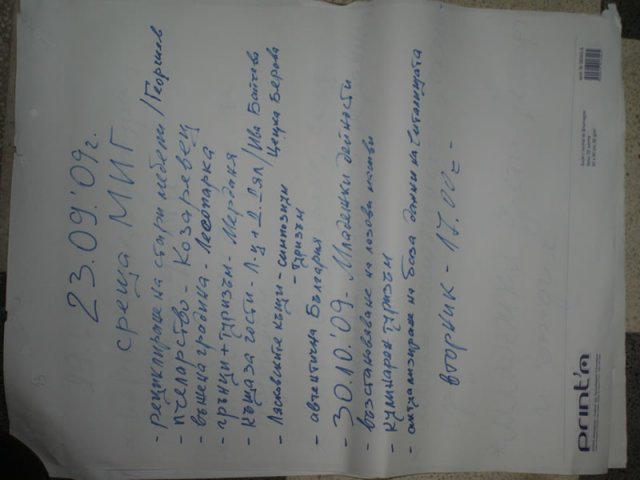 23.09.'09г.
среща МИГ
- рециклиране на стари мебели / Георгиев
- пчеларство - Козаревец
- въшена градина - Лесопарка
- грънци + туризъм - Мерданя
- Къща за гости - Л-ц + Д. Оял / Ива Бойчева
- Лясковските къщи - симпозиди Цецка Берова
- туризъм
- автентична България
- 30.10.'09 - Младежки дейности
- възстановяване на лозови масиви
- кулинарен туризъм
- на база данни на Читалищата
вторник - 17.00ч -
print'n